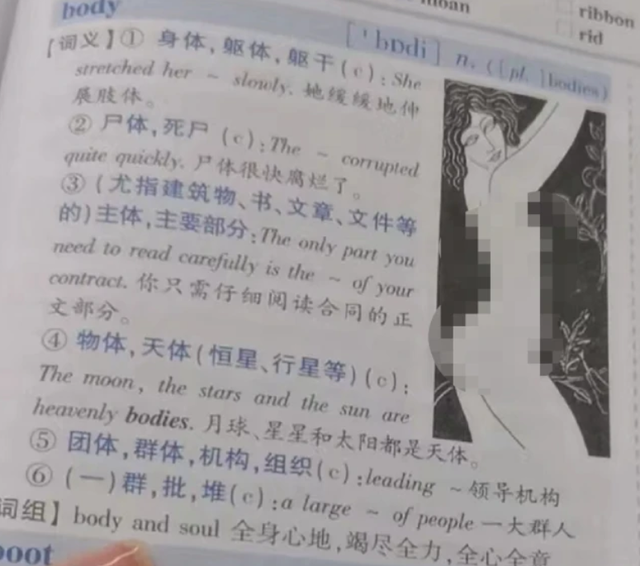 ribbon
rid
body
['bɒdi] n. ([pl. ]bodies)
【词义】① 身体,躯体,躯干(c):She
stretched her ~ slowly. 她缓缓地伸
展肢体。
② 尸体,死尸 (c):The ~ corrupted
quite quickly. 尸体很快腐烂了。
③ (尤指建筑物、书、文章、文件等
的)主体,主要部分:The only part you
need to read carefully is the ~ of your
contract. 你只需仔细阅读合同的正
文部分。
④ 物体,天体(恒星、行星等)(c):
The moon, the stars and the sun are
heavenly bodies. 月球、星星和太阳都是天体。
⑤ 团体,群体,机构,组织(c):leading ~领导机构
⑥ (一)群,批,堆(c):a large ~ of people 一大群人
词组】body and soul 全身心地,竭尽全力,全心全意